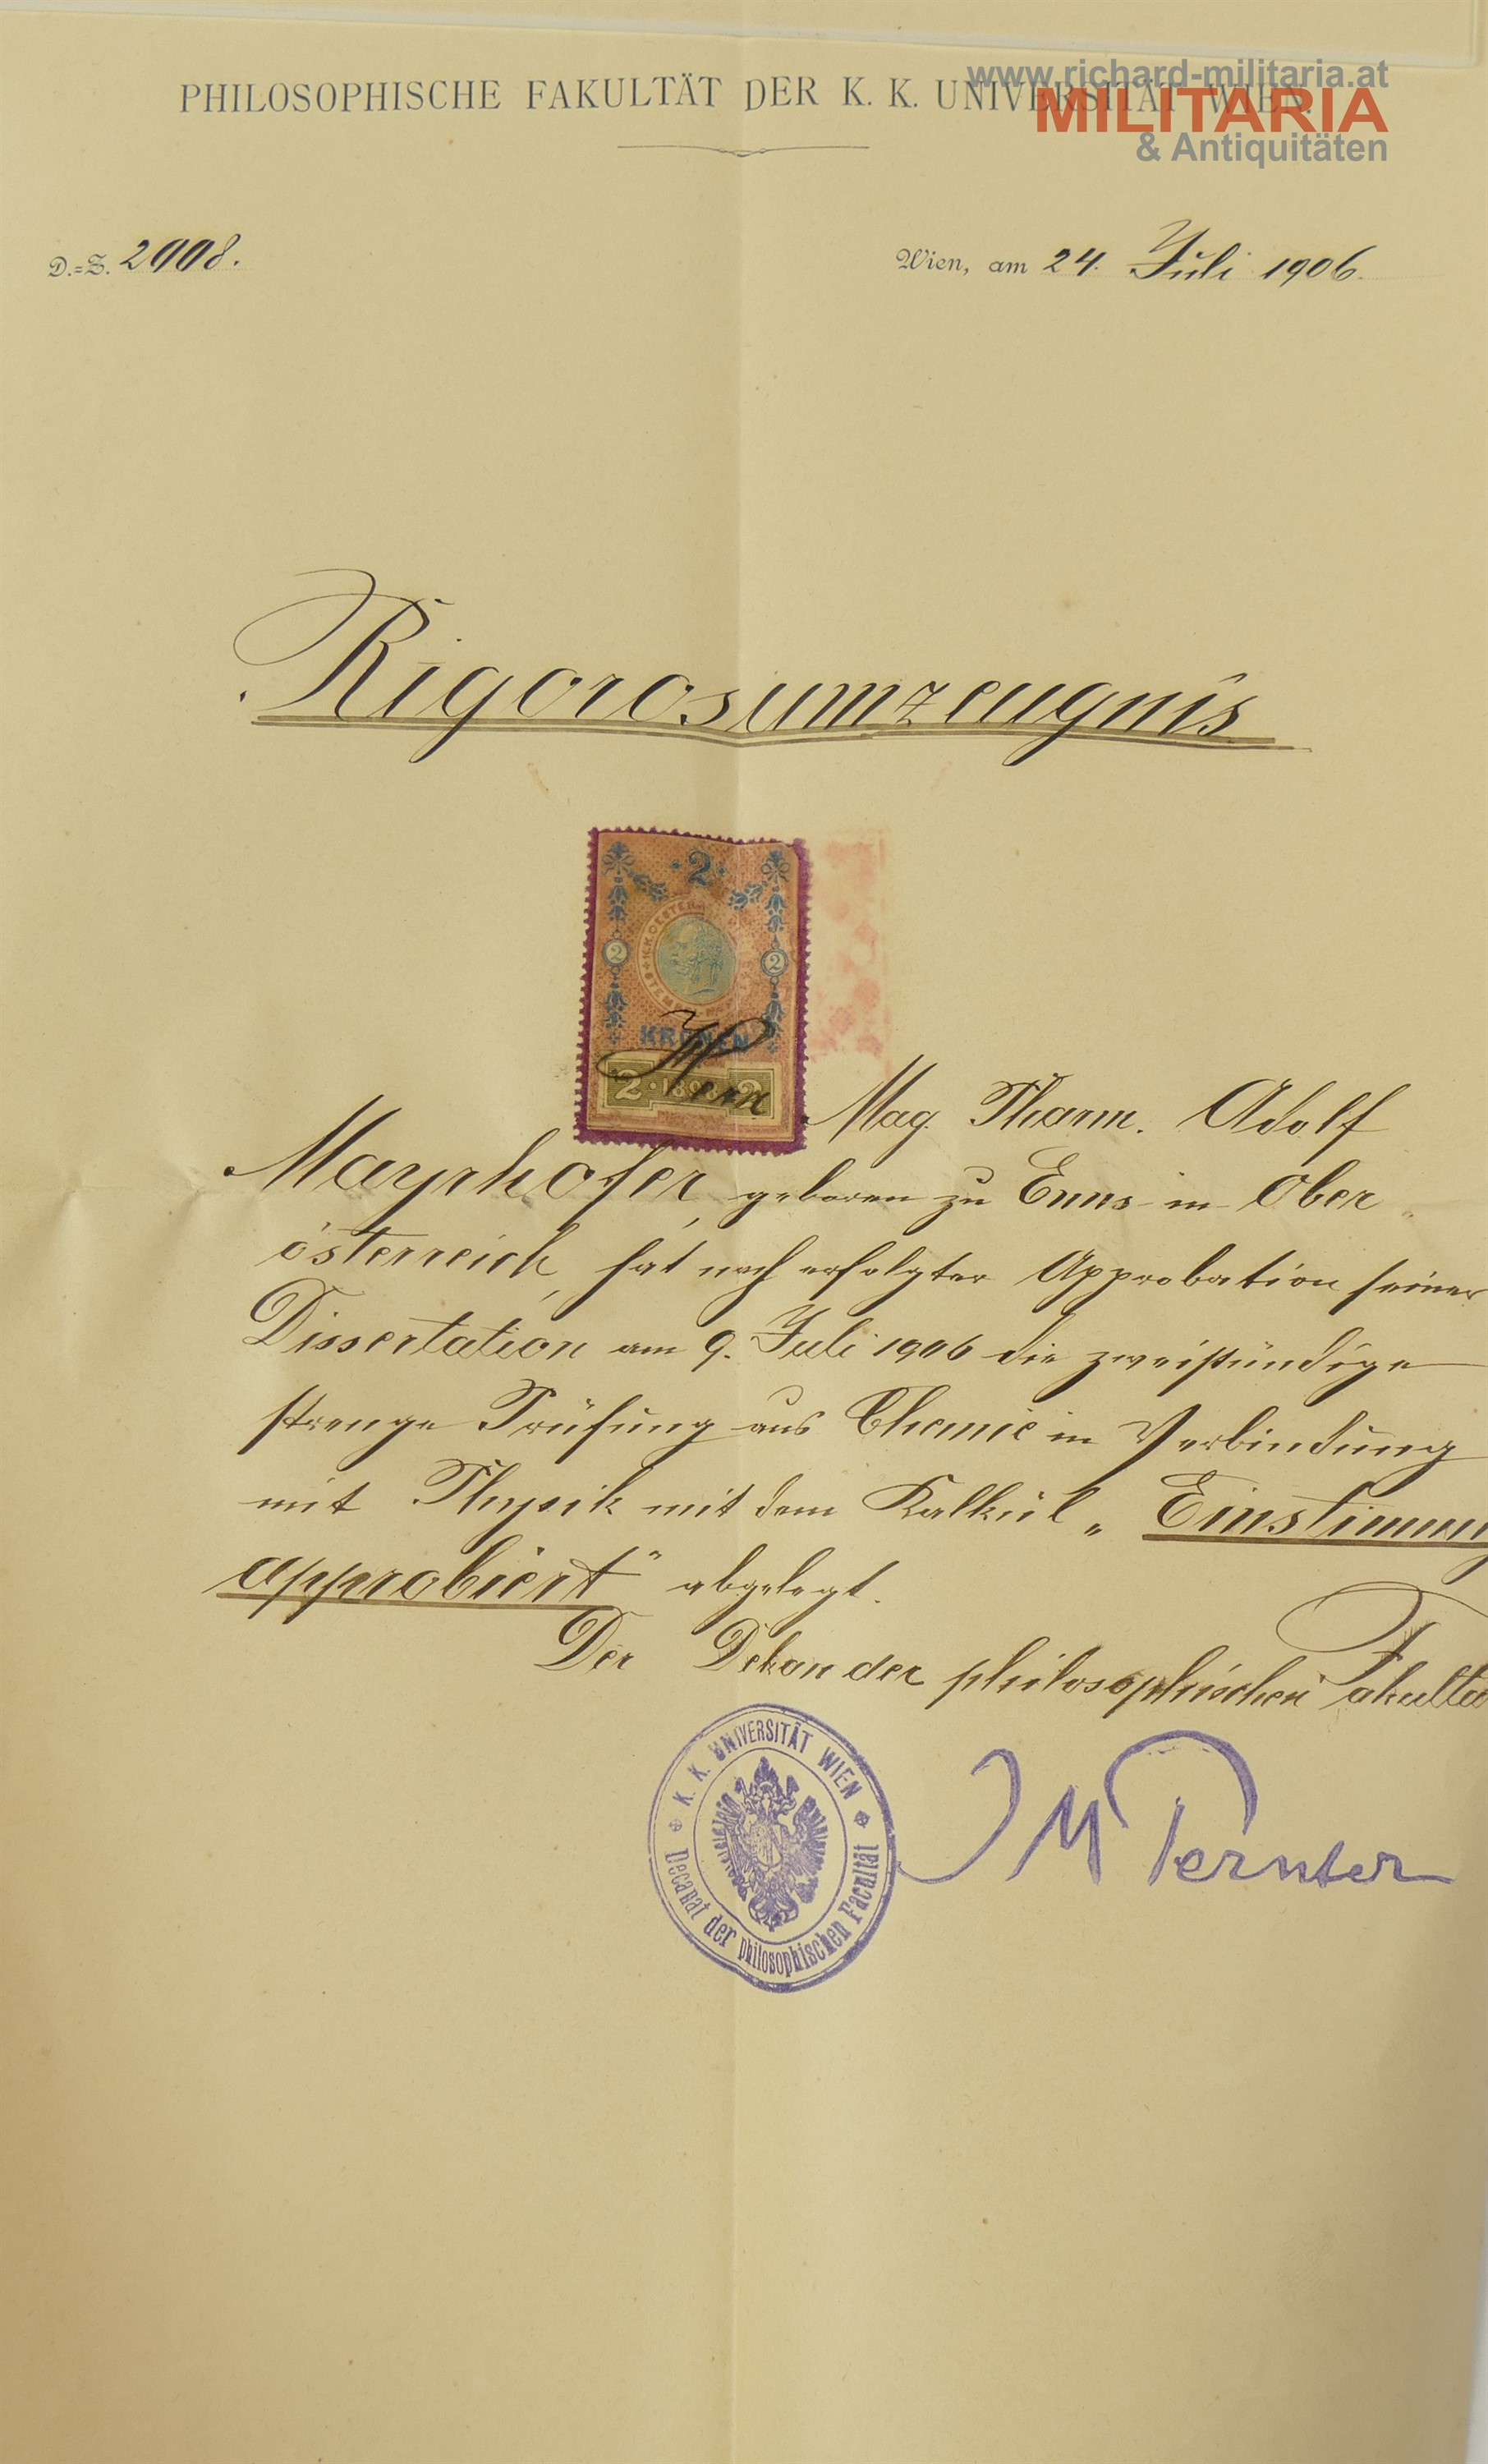 www.richard-militaria.at
MILITARIA
& Antiquitäten
PHILOSOPHISCHE FAKULTÄT DER K. K. UNIVERSITÄT WIEN.
D.=Z. 2908.
Wien, am 24. Juli 1906.
Rigorosumzeugnis
2
2 2
KRONEN
2 · 1898 · 2
Herr Mag. Pharm. Adolf
Mayrhofer, geboren zu Enns in Ober
österreich, hat nach erfolgter Approbation seiner
Dissertation am 9. Juli 1906 die zweistündige
strenge Prüfung aus Chemie in Verbindung
mit Physik mit dem Kalkül „Einstimmig
approbiert“ abgelegt.
Der Dekan der philosophischen Fakultä
K. K. UNIVERSITÄT WIEN
Decanat der philosophischen Facultät
J M Pernter